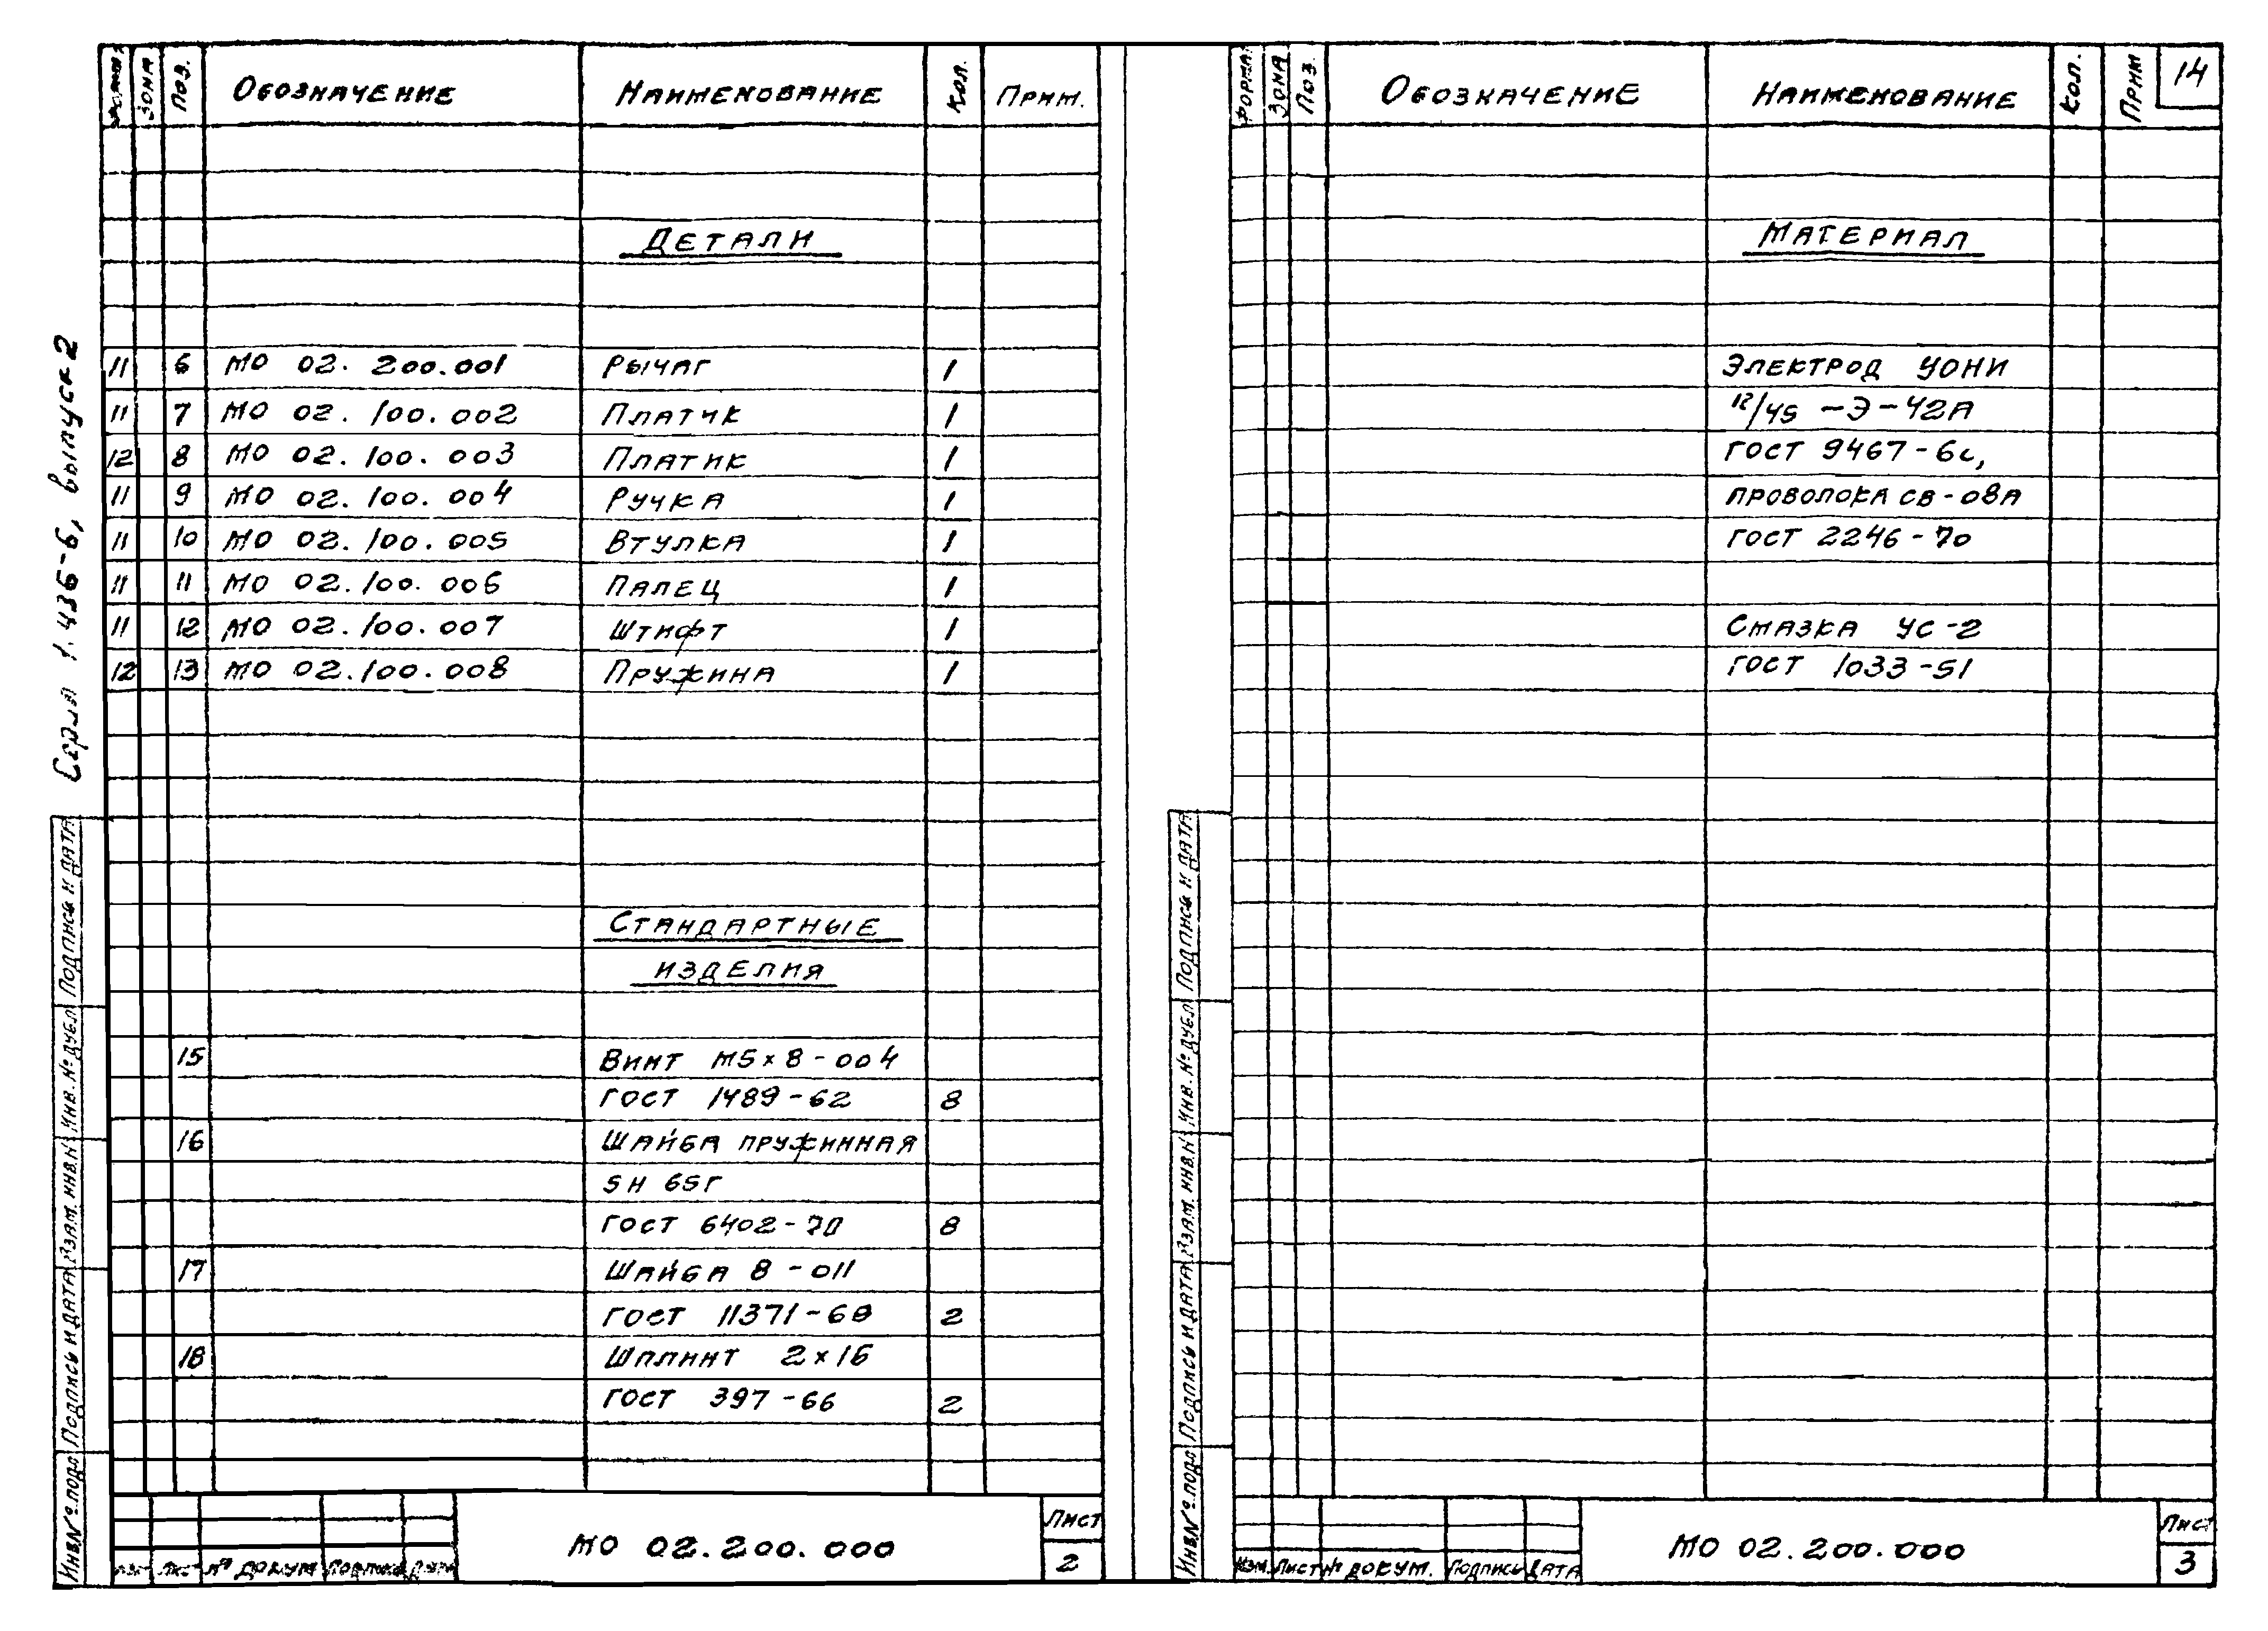 Серия 1.436-6, выпуск 2
ФОРМАТ ЗОНА ПОЗ. ОБОЗНАЧЕНИЕ НАИМЕНОВАНИЕ КОЛ. ПРИМ.
ДЕТАЛИ
11 6 МО 02.200.001 РЫЧАГ 1
11 7 МО 02.100.002 ПЛАТИК 1
12 8 МО 02.100.003 ПЛАТИК 1
11 9 МО 02.100.004 РУЧКА 1
11 10 МО 02.100.005 ВТУЛКА 1
11 11 МО 02.100.006 ПАЛЕЦ 1
11 12 МО 02.100.007 ШТИФТ 1
12 13 МО 02.100.008 ПРУЖИНА 1
СТАНДАРТНЫЕ
ИЗДЕЛИЯ
15 ВИНТ М5×8-004
ГОСТ 1489-62 8
16 ШАЙБА ПРУЖИННАЯ
5Н 65Г
ГОСТ 6402-70 8
17 ШАЙБА 8-011
ГОСТ 11371-68 2
18 ШПЛИНТ 2×16
ГОСТ 397-66 2
ПОДПИСЬ И ДАТА
ИНВ. № ДУБЛ
ВЗАМ. ИНВ. №
ПОДПИСЬ И ДАТА
ИНВ № ПОДЛ
ИЗМ ЛИСТ № ДОКУМ ПОДПИСЬ ДАТА
МО 02.200.000
ЛИСТ
2
ФОРМА ЗОНА ПОЗ. ОБОЗНАЧЕНИЕ НАИМЕНОВАНИЕ КОЛ. ПРИМ 14
МАТЕРИАЛ
ЭЛЕКТРОД УОНИ
12/45 -Э-42А
ГОСТ 9467-60,
ПРОВОЛОКА СВ-08А
ГОСТ 2246-70
СМАЗКА УС-2
ГОСТ 1033-51
ПОДПИСЬ И ДАТА
ИНВ. № ДУБЛ
ВЗАМ. ИНВ. №
ПОДПИСЬ И ДАТА
ИНВ № ПОДЛ
ИЗМ. ЛИСТ № ДОКУМ. ПОДПИСЬ ДАТА
МО 02.200.000
ЛИСТ
3